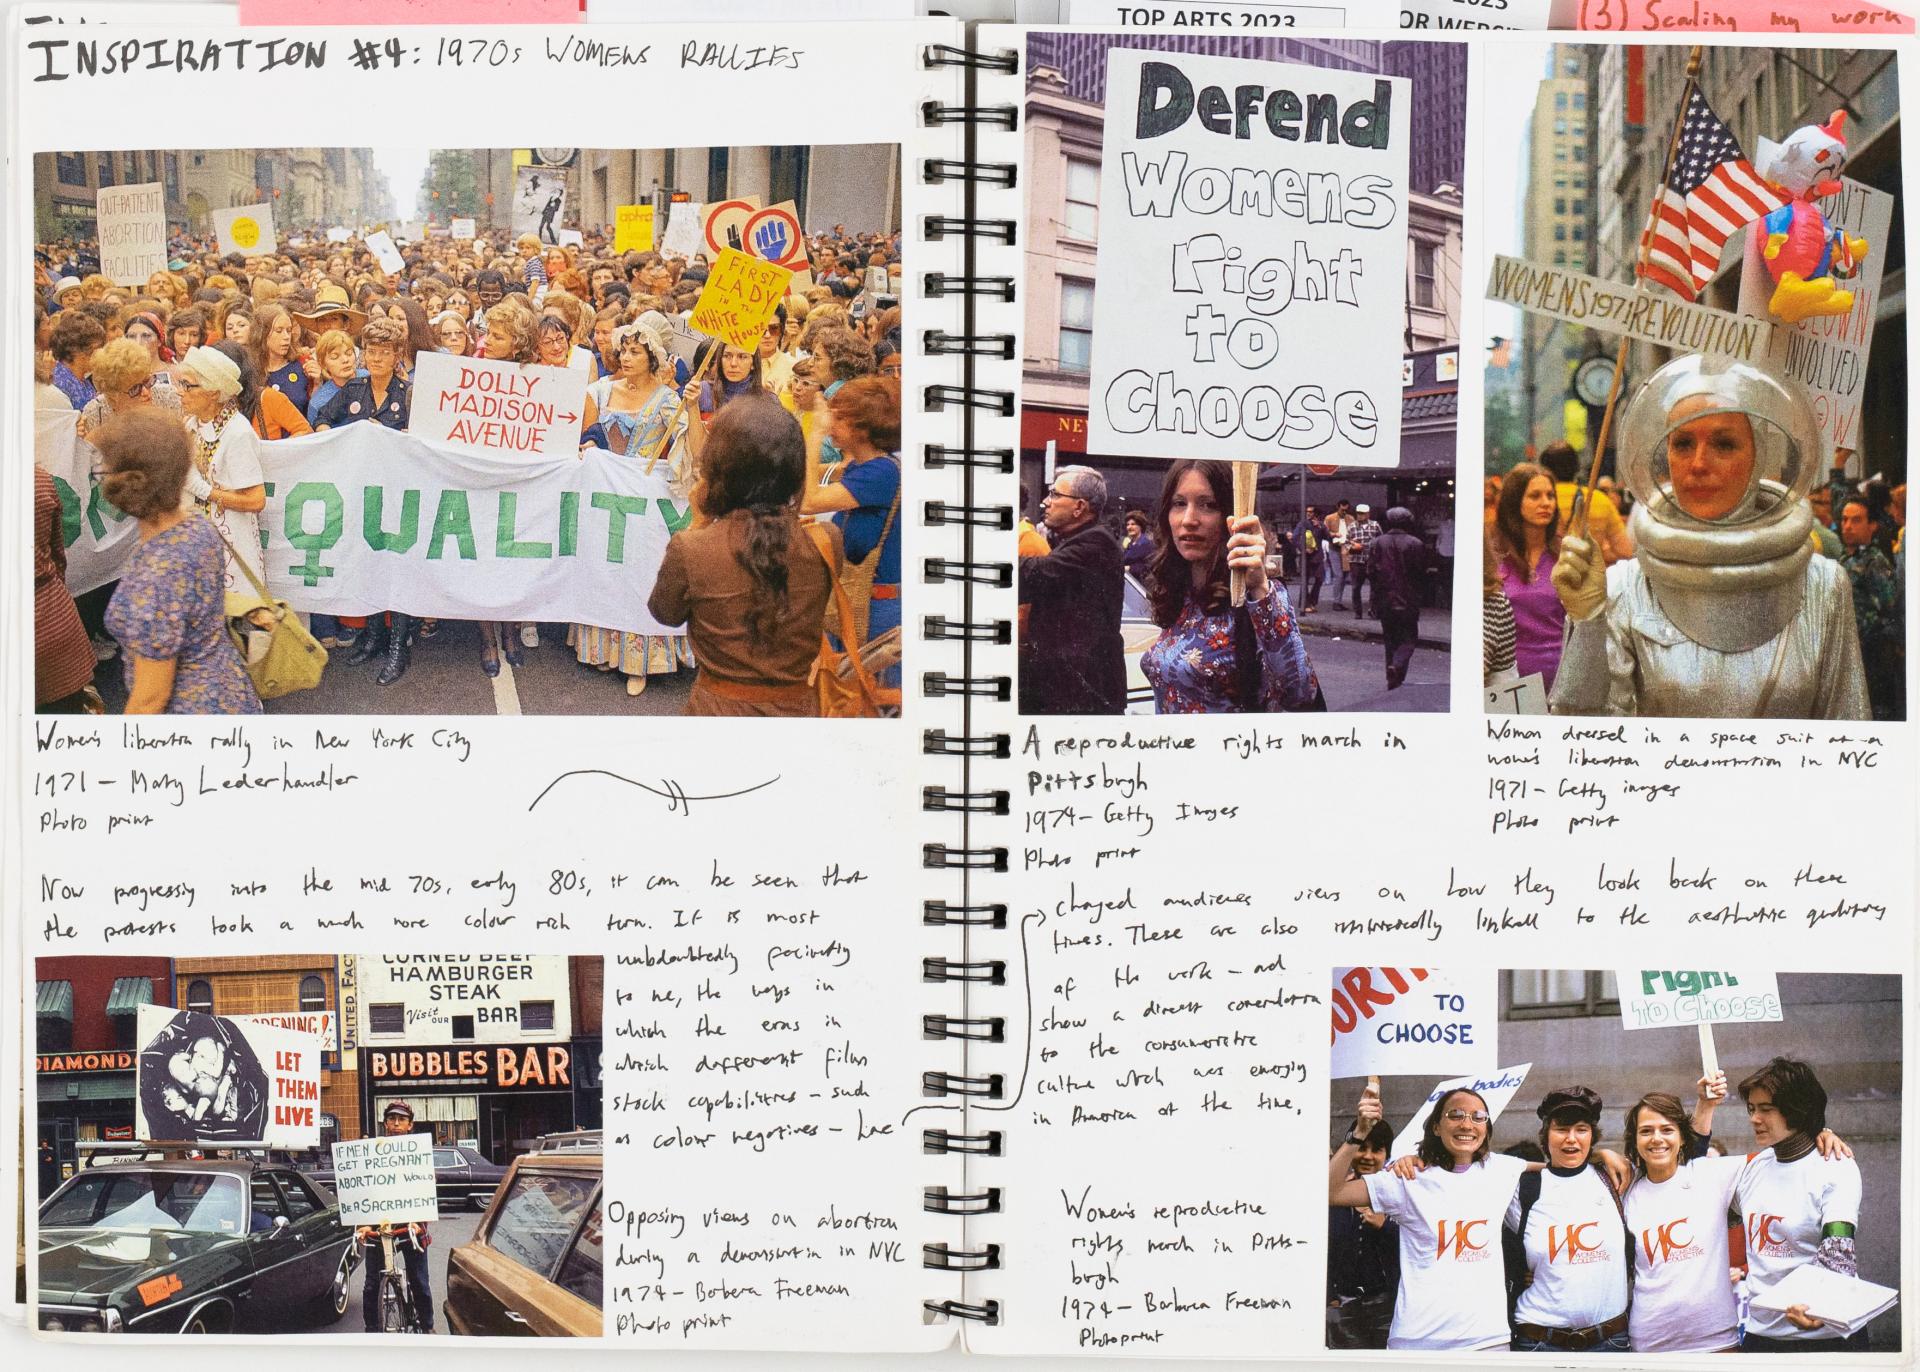 TOP ARTS 2023
2023
OR WEBSIT
(3) Scaling my work
INSPIRATION #4: 1970s WOMENS RALLIES
OUT-PATIENT
ABORTION
FACILITIES
FIRST
LADY
in THE
WHITE
House
DOLLY
MADISON→
AVENUE
EQUALITY
Women's liberation rally in New York City
1971 - Marty Lederhandler
Photo print
Now progressing into the mid 70s, early 80s, it can be seen that
the protests took a much more colour rich turn. It is most
undoubtedly
to me, the ways in
which the eras in
which different film
stock capabilities - such
as colour negatives - have
CORNED BEEF
HAMBURGER
STEAK
Visit OUR BAR
UNITED FAC
DIAMOND
OPENING!
BUBBLES BAR
LET
THEM
LIVE
IF MEN COULD
GET PREGNANT
ABORTION WOULD
BE A SACRAMENT
Opposing views on abortion
during a demonstration in NYC
1974 - Barbara Freeman
Photo print
Defend
Womens
right
to
Choose
NE
A reproductive rights march in
Pittsburgh
1974 - Getty Images
Photo print
WOMENS 1971 REVOLUTION
ON'T
CLOWN
INVOLVED
OW
Woman dressed in a space suit at a
women's liberation demonstration in NYC
1971 - Getty images
Photo print
changed audiences views on how they look back on these
times. These are also intrinsically linked to the aesthetic qualities
of the work - and
show a direct correlation
to the consumeristic
culture which was emerging
in America at the time.
Women's reproductive
rights march in Pitts-
burgh
1974 - Barbara Freeman
Photo print
ORTI
TO
CHOOSE
bodies
Right
TO Choose
WC
WOMEN'S
COLLECTIVE
WC
WOMEN'S
COLLECTIVE
WC
WOMEN'S
COLLECTIVE
WC
WOMEN'S
COLLECTIVE